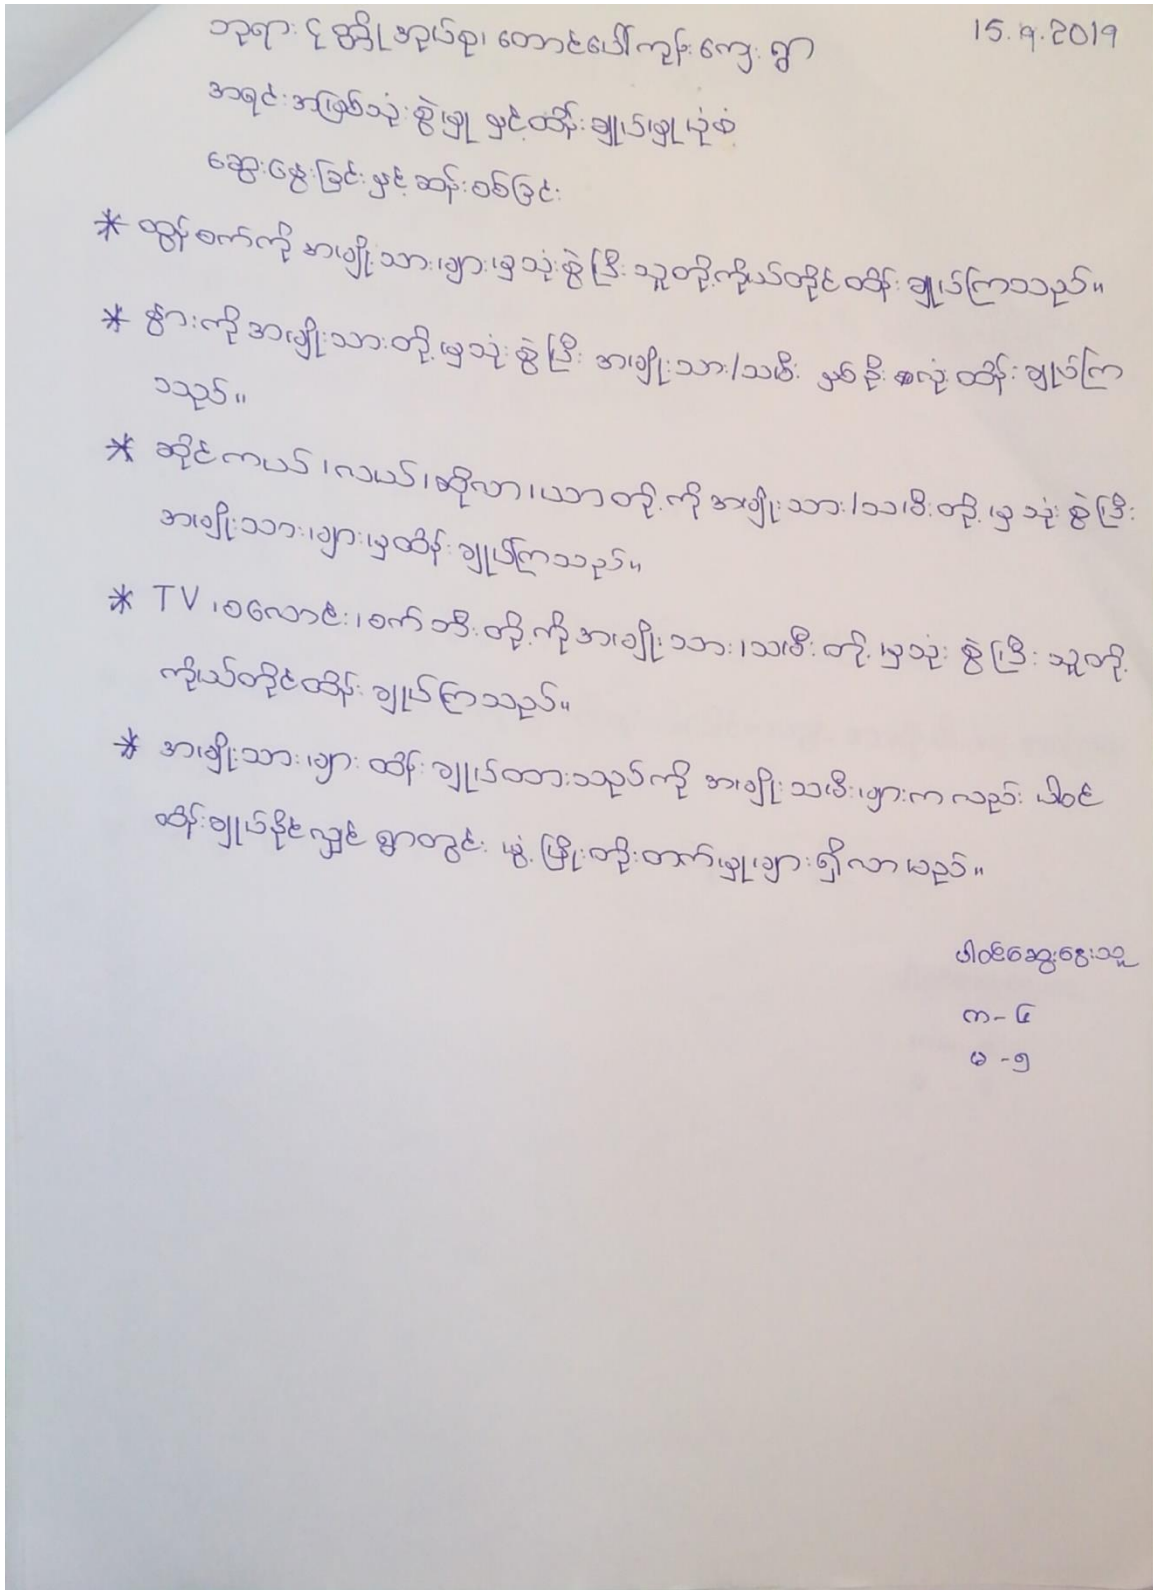 ဘုရားငုတ္တိုအုပ်စု၊ တောင်ပေါ်ကုန်းကျေးရွာ 15.9.2019
အရင်းအမြစ်သုံးစွဲမှု နှင့်ထိန်းချုပ်မှုပုံစံ
ဆွေးနွေးခြင်းနှင့် ဆန်းစစ်ခြင်း
* ထွန်စက်ကို အမျိုးသားများမှသုံးစွဲပြီး သူတို့ကိုယ်တိုင်ထိန်းချုပ်ကြသည်။
* နွားကိုအမျိုးသားတို့မှသုံးစွဲပြီး အမျိုးသား/သမီး နှစ်ဦးစလုံးထိန်းချုပ်ကြ
သည်။
* ဆိုင်ကယ်၊လယ်၊ဆိုလာ၊ယာတို့ကို အမျိုးသား/သမီးတို့မှသုံးစွဲပြီး
အမျိုးသားများမှထိန်းချုပ်ကြသည်။
* TV ၊စလောင်း၊စက်ဘီးတို့ကိုအမျိုးသား၊သမီးတို့မှသုံးစွဲပြီး သူတို့
ကိုယ်တိုင်ထိန်းချုပ်ကြသည်။
* အမျိုးသားများထိန်းချုပ်ထားသည်ကို အမျိုးသမီးများကလည်း ပါဝင်
ထိန်းချုပ်နိုင်လျှင် ရွာတွင်း ဖွံ့ဖြိုးတိုးတက်မှုများရှိလာမည်။
ပါဝင်ဆွေးနွေးသူ
က - ၄
မ - ၅